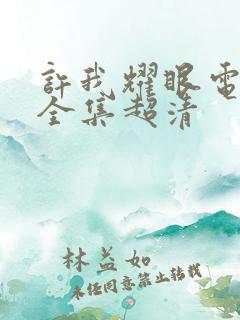 許我耀眼電
全集超清
林益如
未经同意禁止转载